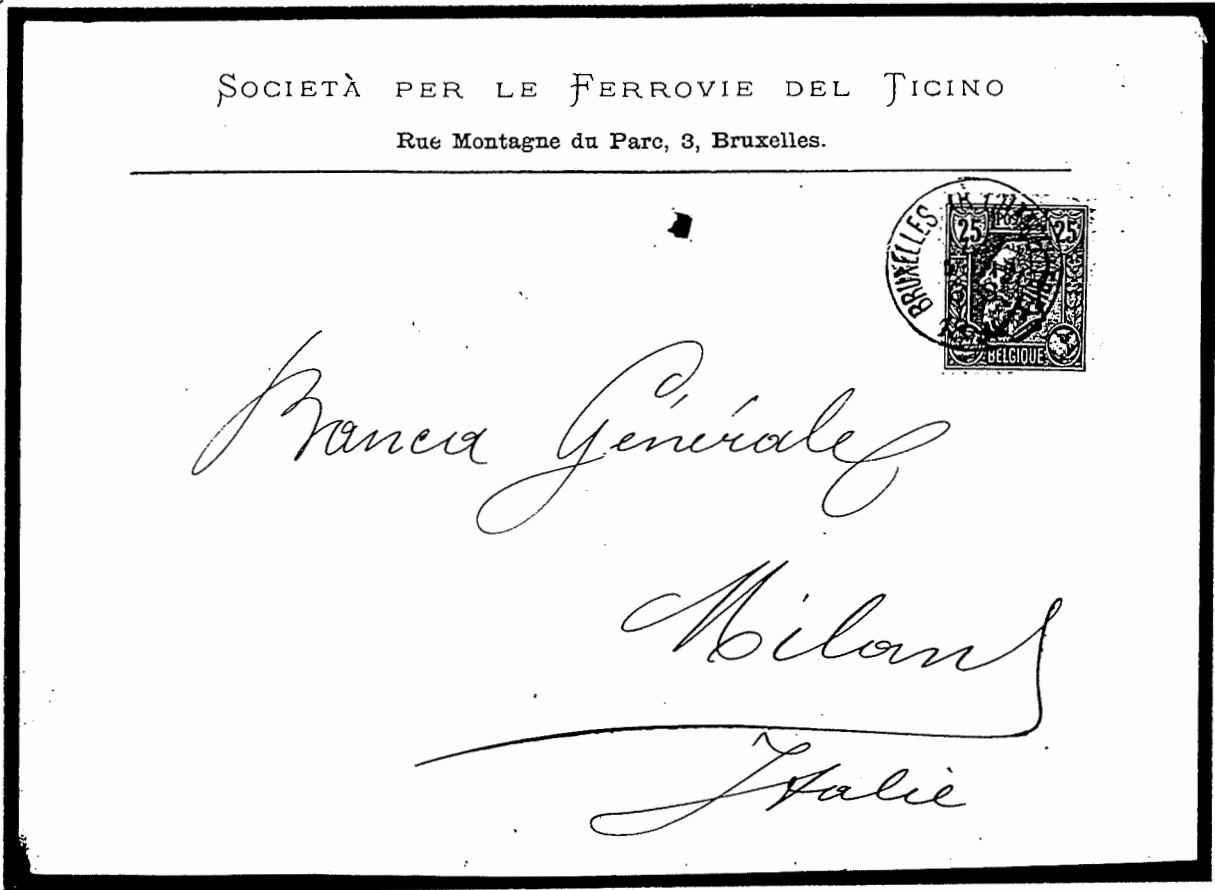 SOCIETÀ PER LE FERROVIE DEL TICINO
Rue Montagne du Parc, 3, Bruxelles.
BRUXELLES
25 25
BELGIQUE
Banca Générale
Milan
Italie